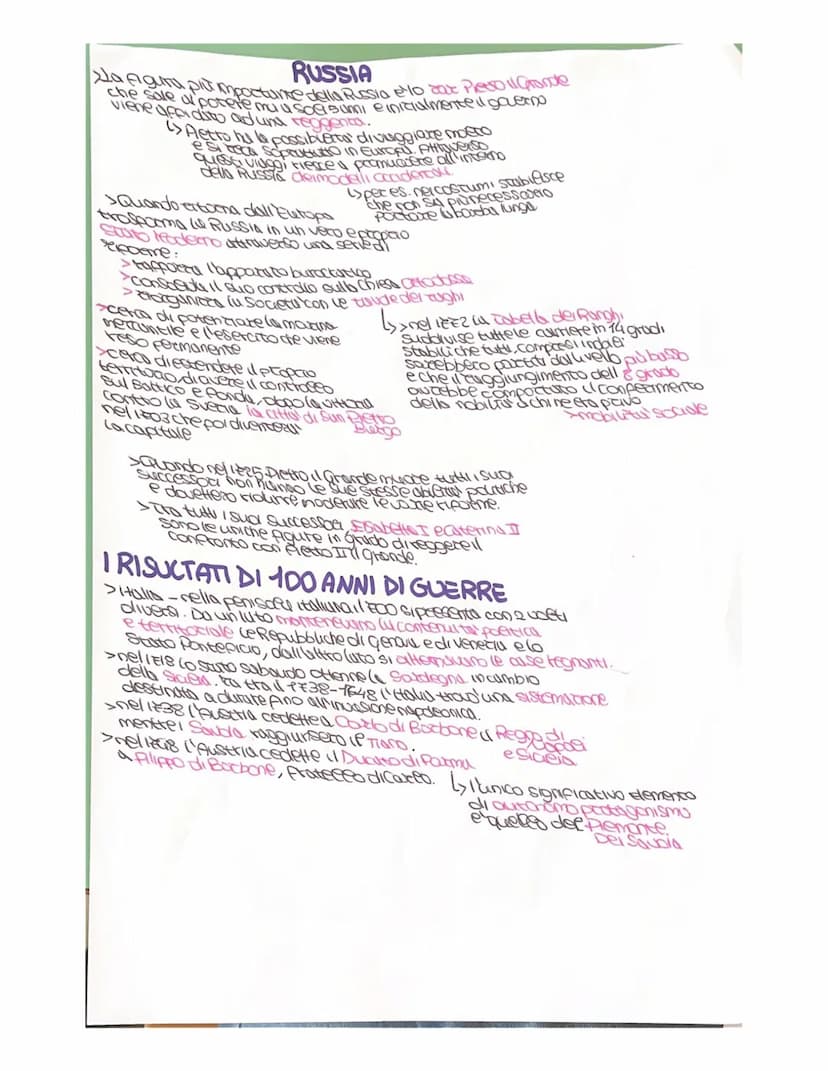 RUSSIA
>La figura più importante della Russia è lo zar Pietro il Grande
che sale al potere ma a soli 5 anni e inizialmente il governo
viene affidato ad una reggenza.
↳ Pietro ha la possibilità di viaggiare molto
e si reca soprattutto in Europa. Attraverso
questi viaggi riesce a promuovere all'interno
della Russia dei modelli occidentali.
↳ per es. nei costumi stabilisce
che non sia più necessario
portare la barba lunga
>Quando ritorna dall'Europa
trasforma la Russia in un vero e proprio
Stato Moderno attraverso una serie di
riforme:
> rafforza l'apparato burocratico
> consolida il suo controllo sulla chiesa ortodossa
> riorganizza la società con le tavole dei ranghi
↳>nel 1722 la Tabella dei Ranghi
suddivise tutte le carriere in 14 gradi
stabilì che tutti, compresi i nobili
sarebbero partiti dal livello più basso
e che il raggiungimento dell'8° grado
avrebbe comportato il conferimento
della nobiltà a chi ne era privo
>mobilità sociale
>cerca di potenziare la marina
mercantile e l'esercito che viene
reso permanente
>cerca di estendere il proprio
territorio, di avere il controllo
sul Baltico e fonda, dopo la vittoria
contro la Svezia, la città di San Pietro
Burgo
nel 1703 che poi diventerà
la capitale
>Quando nel 1725 Pietro il Grande muore tutti i suoi
successori non hanno le sue stesse abilità politiche
e dovettero ridurre moderare le varie riforme.
>Tra tutti i suoi successori Elisabetta I e Caterina II
sono le uniche figure in grado di reggere il
confronto con Pietro il Grande.
I RISULTATI DI 100 ANNI DI GUERRE
>Italia – nella penisola italiana il 700 si presenta con 2 volti
diversi. Da un lato mantenevano la continuità politica
e territoriale le Repubbliche di Genova e di Venezia e lo
Stato Pontificio, dall'altro lato si alternavano le case regnanti.
>nel 1718 lo stato sabaudo ottenne la Sardegna in cambio
della Sicilia. Fra tra il 1738-1748 l'Italia trovò una sistemazione
destinata a durare fino all'invasione napoleonica.
>nel 1738 l'Austria cedette a Carlo di Borbone il Regno di
Napoli
e Sicilia
mentre i Savoia raggiunsero il Ticino.
>nel 1748 l'Austria cedette il Ducato di Parma
a Filippo di Borbone, fratello di Carlo.
↳ l'unico significativo elemento
di autonomo protagonismo
è quello del Piemonte
Dei Savoia